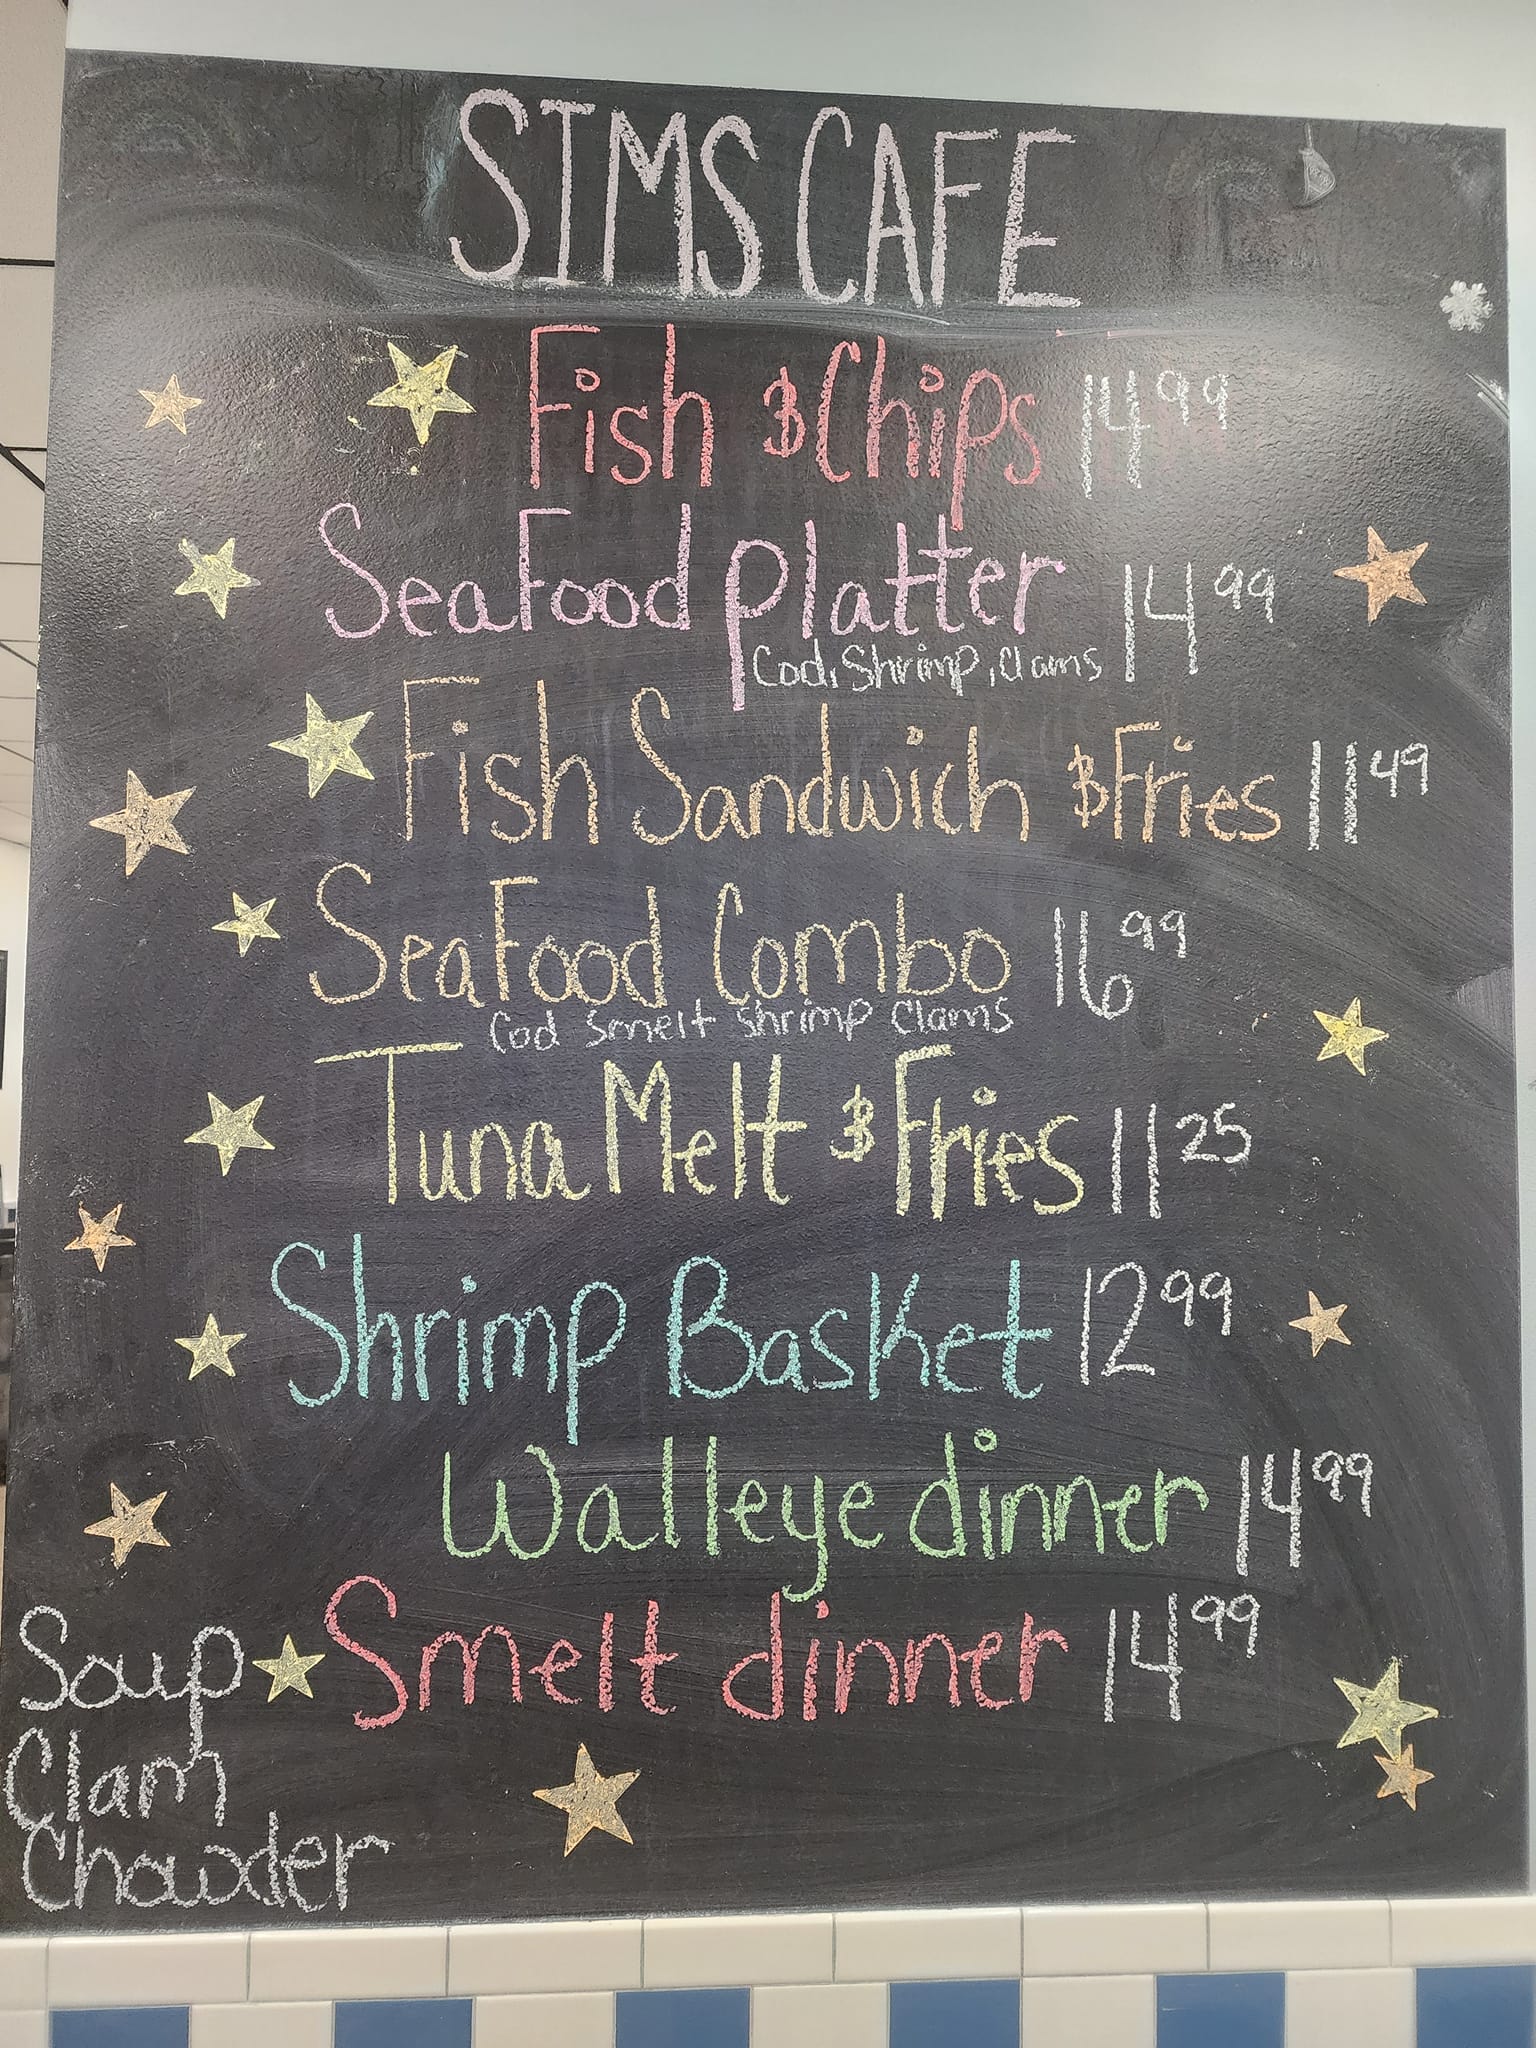 SIMS CAFE
Fish & Chips 14.99
SeaFood Platter 14.99
Cod, Shrimp, Clams
Fish Sandwich & Fries 11.49
SeaFood Combo 16.99
Cod Smelt Shrimp Clams
Tuna Melt & Fries 11.25
Shrimp Basket 12.99
Walleye dinner 14.99
Smelt dinner 14.99
Soup
Clam
Chowder